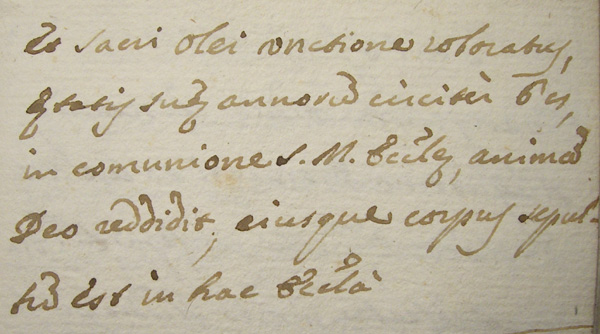 Et sacri olei unctione roboratus,
ętatis suę annorũ circiter
in comunione S. M. Ecclę, animã
Deo reddidit, eiusque corpus sepul-
tũ est in hac Ecclã